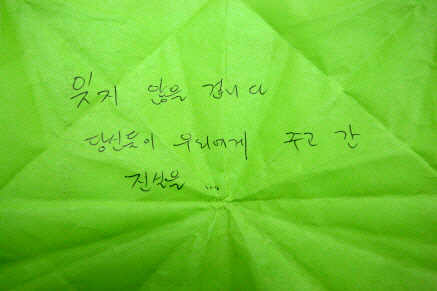 잊지 않을 겁니다
당신들이 우리에게 주고 간
진보를 ...